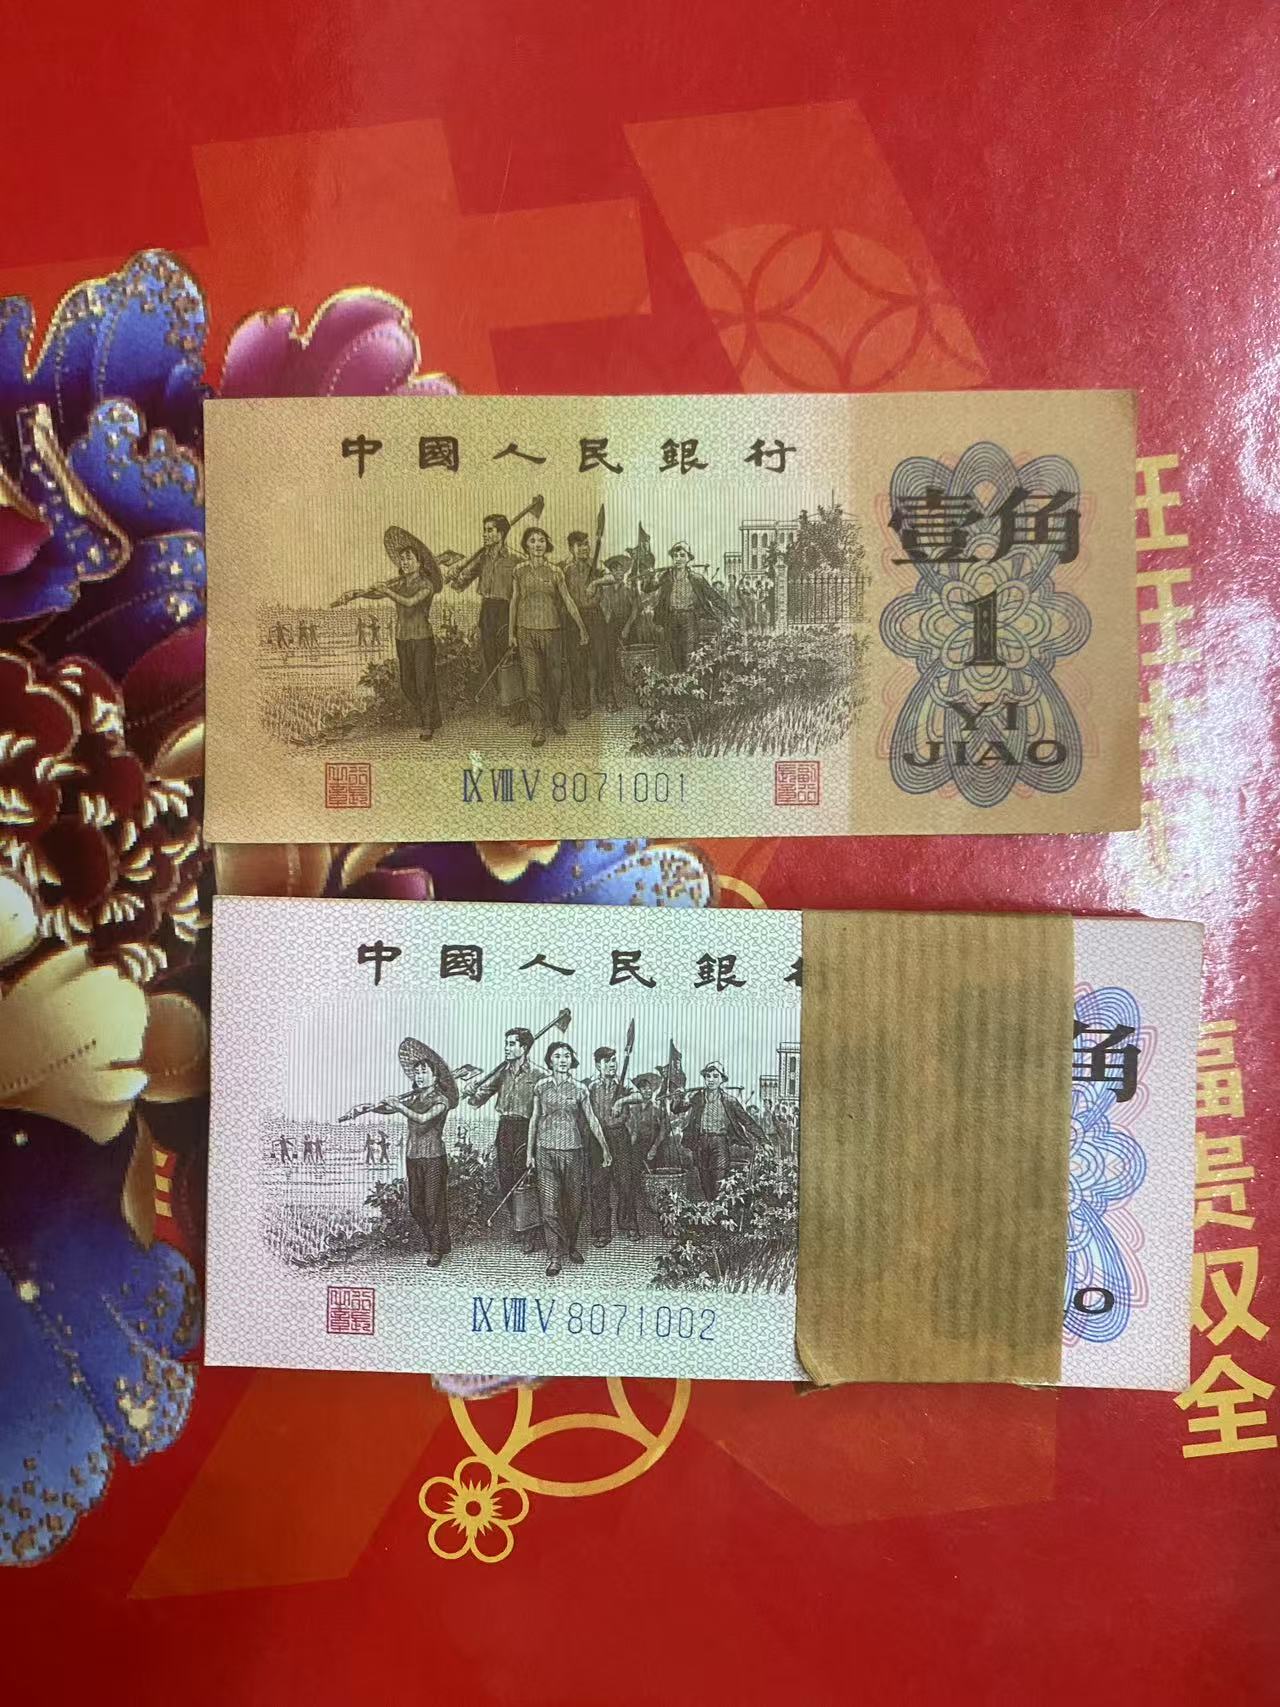 中國人民銀行
壹角
1
YI
JIAO
ⅨⅧⅤ8071001
中國人民銀
角
O
ⅨⅧⅤ8071002
福贵双全